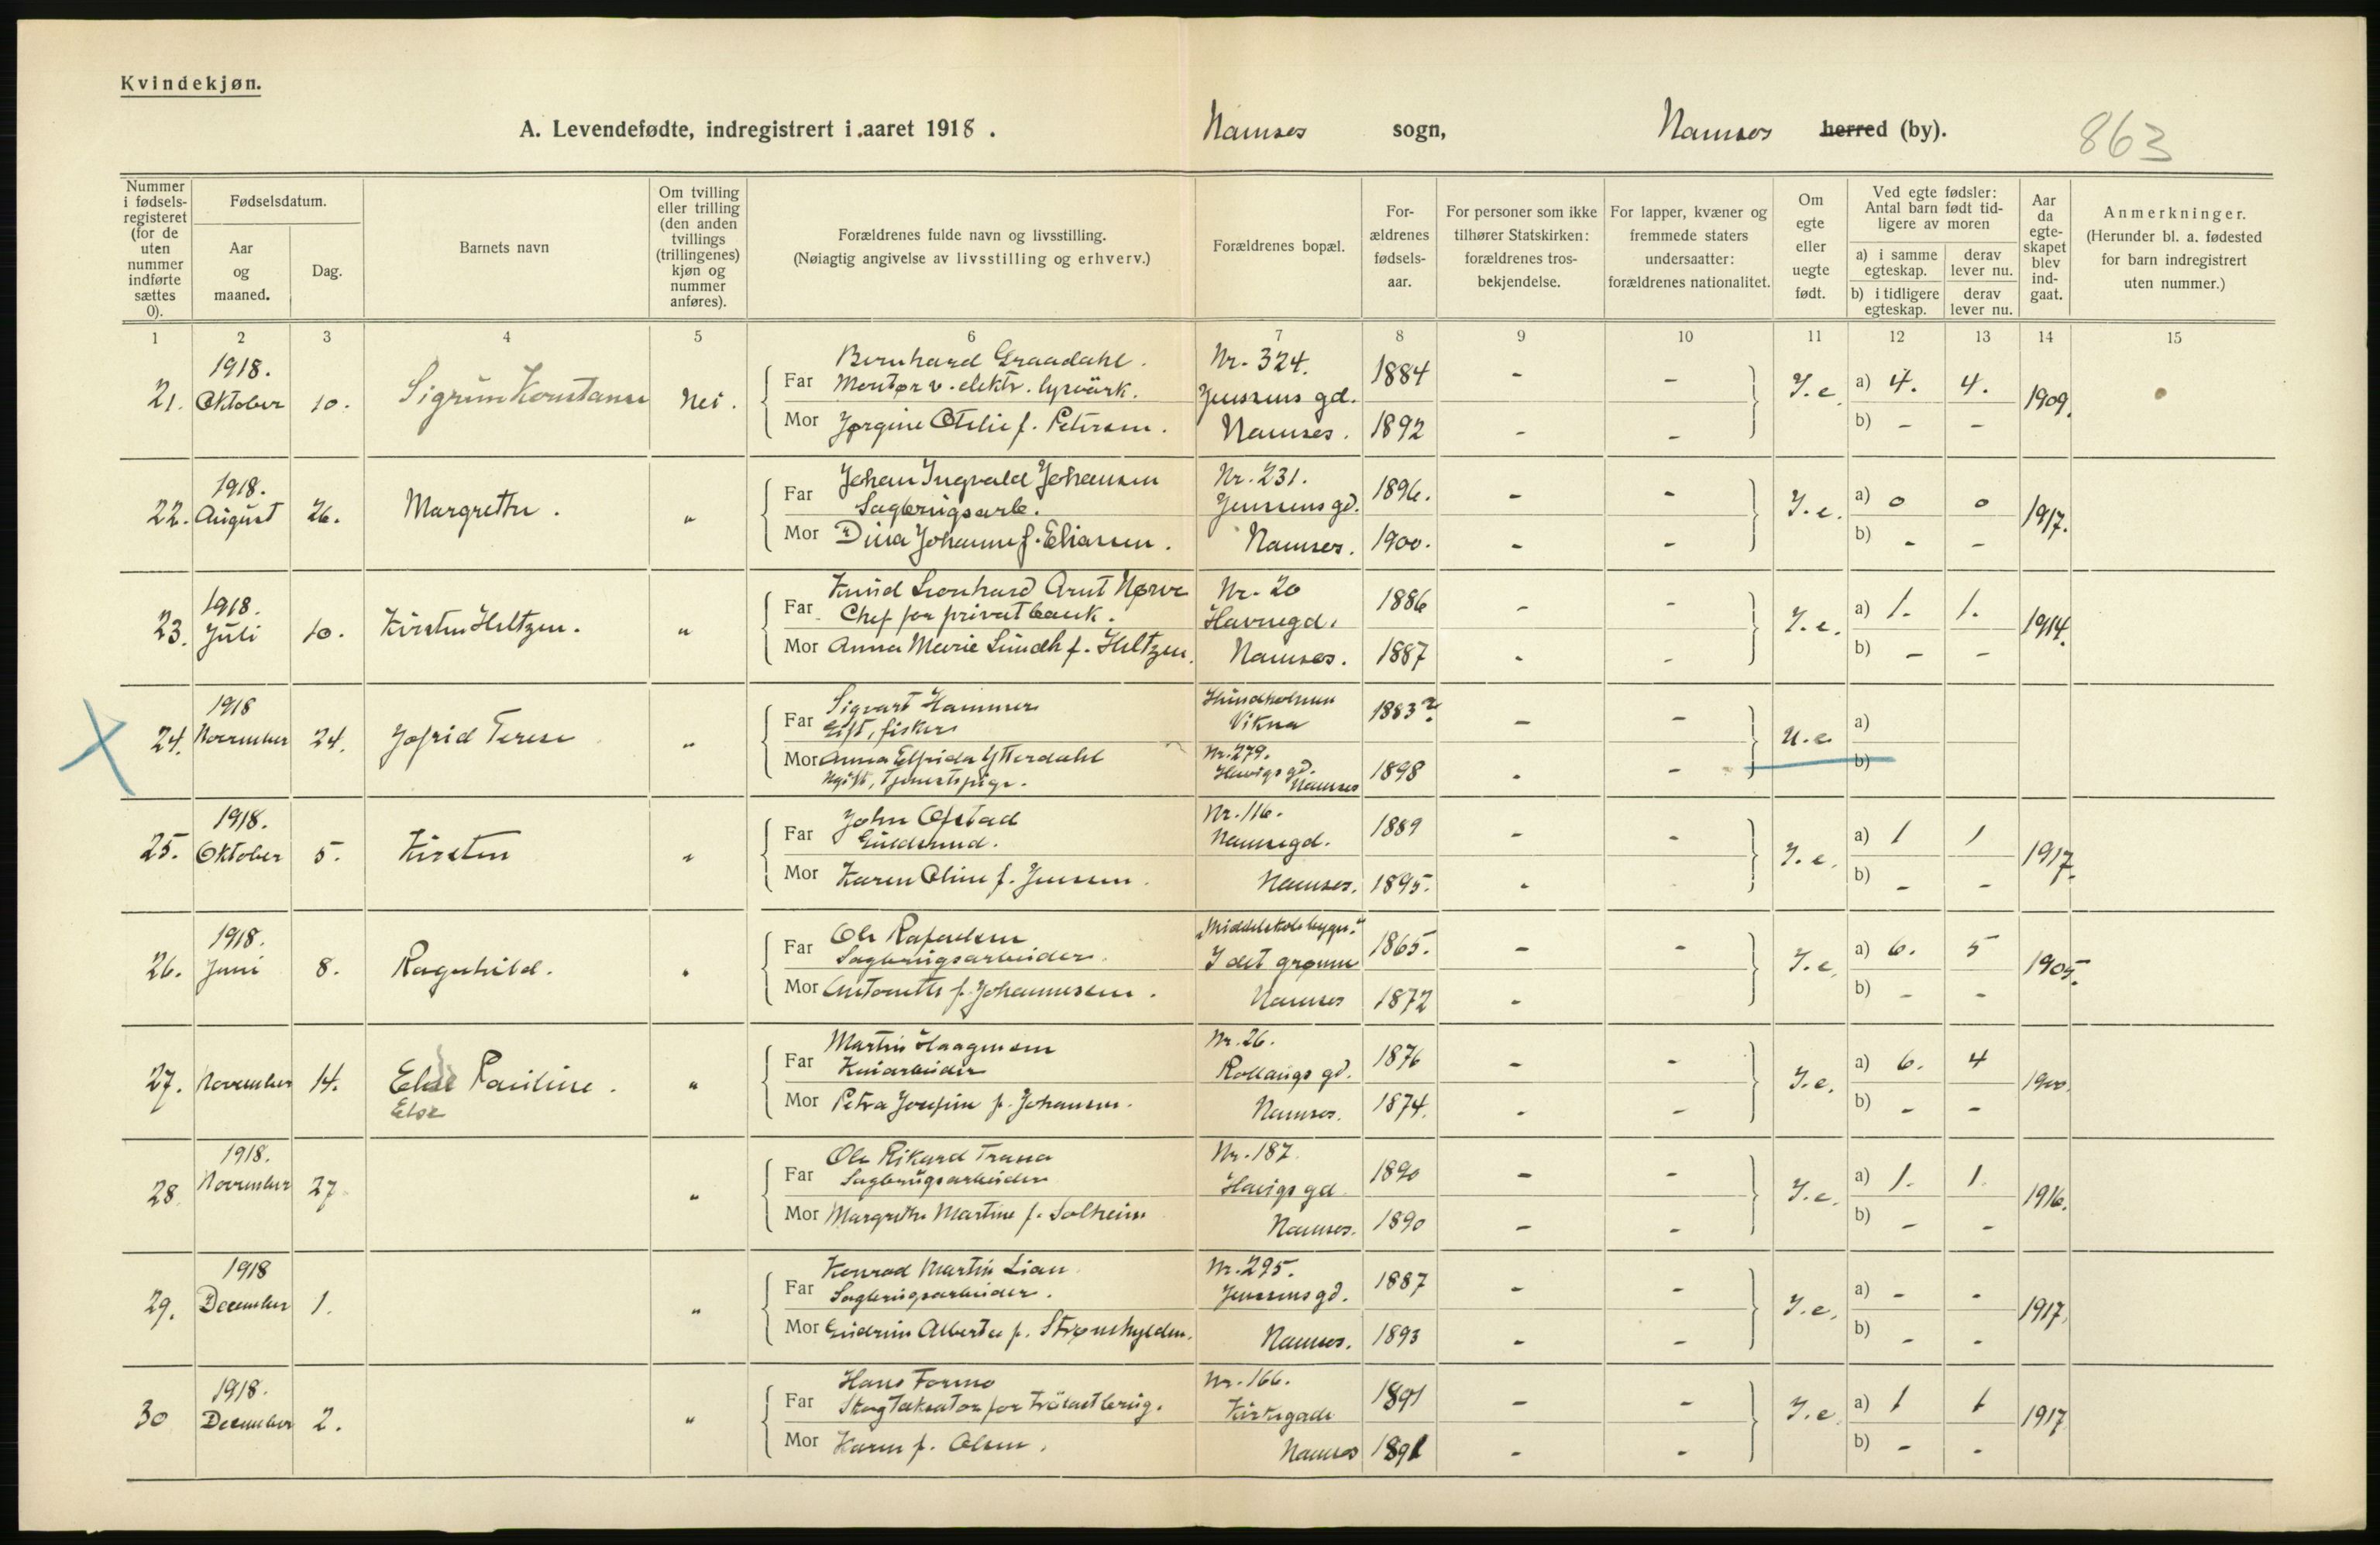 Kvindekjøn.
A. Levendefødte, indregistrert i aaret 1918.
Namsos sogn,
Namsos herred (by).
863
Nummer i fødsels-registeret (for de uten nummer indførte sættes 0).
Fødselsdatum.
Aar og maaned.
Dag.
Barnets navn
Om tvilling eller trilling (den anden tvillings (trillingenes) kjøn og nummer anføres).
Forældrenes fulde navn og livsstilling.
(Nøiagtig angivelse av livsstilling og erhverv.)
Forældrenes bopæl.
For-ældrenes fødsels-aar.
For personer som ikke tilhører Statskirken: forældrenes tros-bekjendelse.
For lapper, kvæner og fremmede staters undersaatter: forældrenes nationalitet.
Om egte eller uegte født.
Ved egte fødsler: Antal barn født tid-ligere av moren
a) i samme egteskap.
derav lever nu.
b) i tidligere egteskap.
derav lever nu.
Aar da egte-skapet blev ind-gaat.
Anmerkninger.
(Herunder bl. a. fødested for barn indregistrert uten nummer.)
1 2 3 4 5 6 7 8 9 10 11 12 13 14 15
1918. Bernhard Graadahl. Nr. 324.
21. Oktober 10. Sigrun Konstanse Nei. Far Montør v. elektr. lysværk. Jenssens gd. 1884 - - I. e. a) 4. 4. 1909.
Mor Jørgine Otelie f. Petersen. Namsos. 1892 - - b) - -
1918. Johan Ingvald Johansen Nr. 231.
22. August 26. Margrethe. " Far Sagbrugsarb. Jenssens gd. 1896. - - I. e. a) 0 0 1917.
Mor Dina Johanne f. Eliassen. Namsos. 1900. - - b) - -
1918. Knud Leonhard Arnt Nørve Nr. 20
23. Juli 10. Kirsten Heltzen. " Far Chef for privatbank. Havnegd. 1886 - - I. e. a) 1. 1. 1914.
Mor Anna Marie Lundh f. Heltzen. Namsos. 1887 - - b) - -
1918 Sigvart Hammer
24. November 24. Jofrid Terese " Far Gift, fisker Vikna 1883? - - U. e. a)
Mor Anna Elfrida Ytterdahl Nr. 279.
Ugift, Tjenestpige. Havigs gd. Namsos 1898 - - b)
1918. John Ofstad Nr. 116.
25. Oktober 5. Kirsten " Far Guldsmed. Namsegd. 1889 - - I. e. a) 1 1 1917.
Mor Karen Oline f. Jenssen. Namsos. 1895. - b) - -
1918. Ole Rafaelsen "Middelskolebygn."
26. Juni 8. Ragnhild. " Far Sagbrugsarbeider. I det grønne 1865. - - I. e. a) 6. 5 1905.
Mor Antonette f. Johannesen. Namsos 1872 - b) - -
Martin Haagensen Nr. 26.
27. November 14. Else Pauline. " Far Kaiarbeider 1876 - - I. e. a) 6. 4 1900.
Else
Mor Petra Josefine f. Johansen. Namsos. 1874. - - b) - -
1918. Ole Rikard Trana Nr. 187.
28 November 27 " Far Sagbrugsarbeider Havigs gd 1890 - - I. e. a) 1. 1. 1916.
Mor Margrethe Martine f. Solheim Namsos. 1890 - - b) - -
1918 Konrad Martin Lian Nr. 295.
29. December 1. " Far Sagbrugsarbeider. Jenssens gd. 1887 - - I. e. a) - - 1917.
Mor Gudrun Alberta f. Strømhylden. Namsos. 1893 - - b) - -
1918. Hans Formo Nr. 166.
30 December 2. " Far Skogtaksator for Trælastbrug. Kirkegade 1891 - - I. e. a) 1 1 1917
Mor Karen f. Olsen. Namsos 1891 - - b) - -